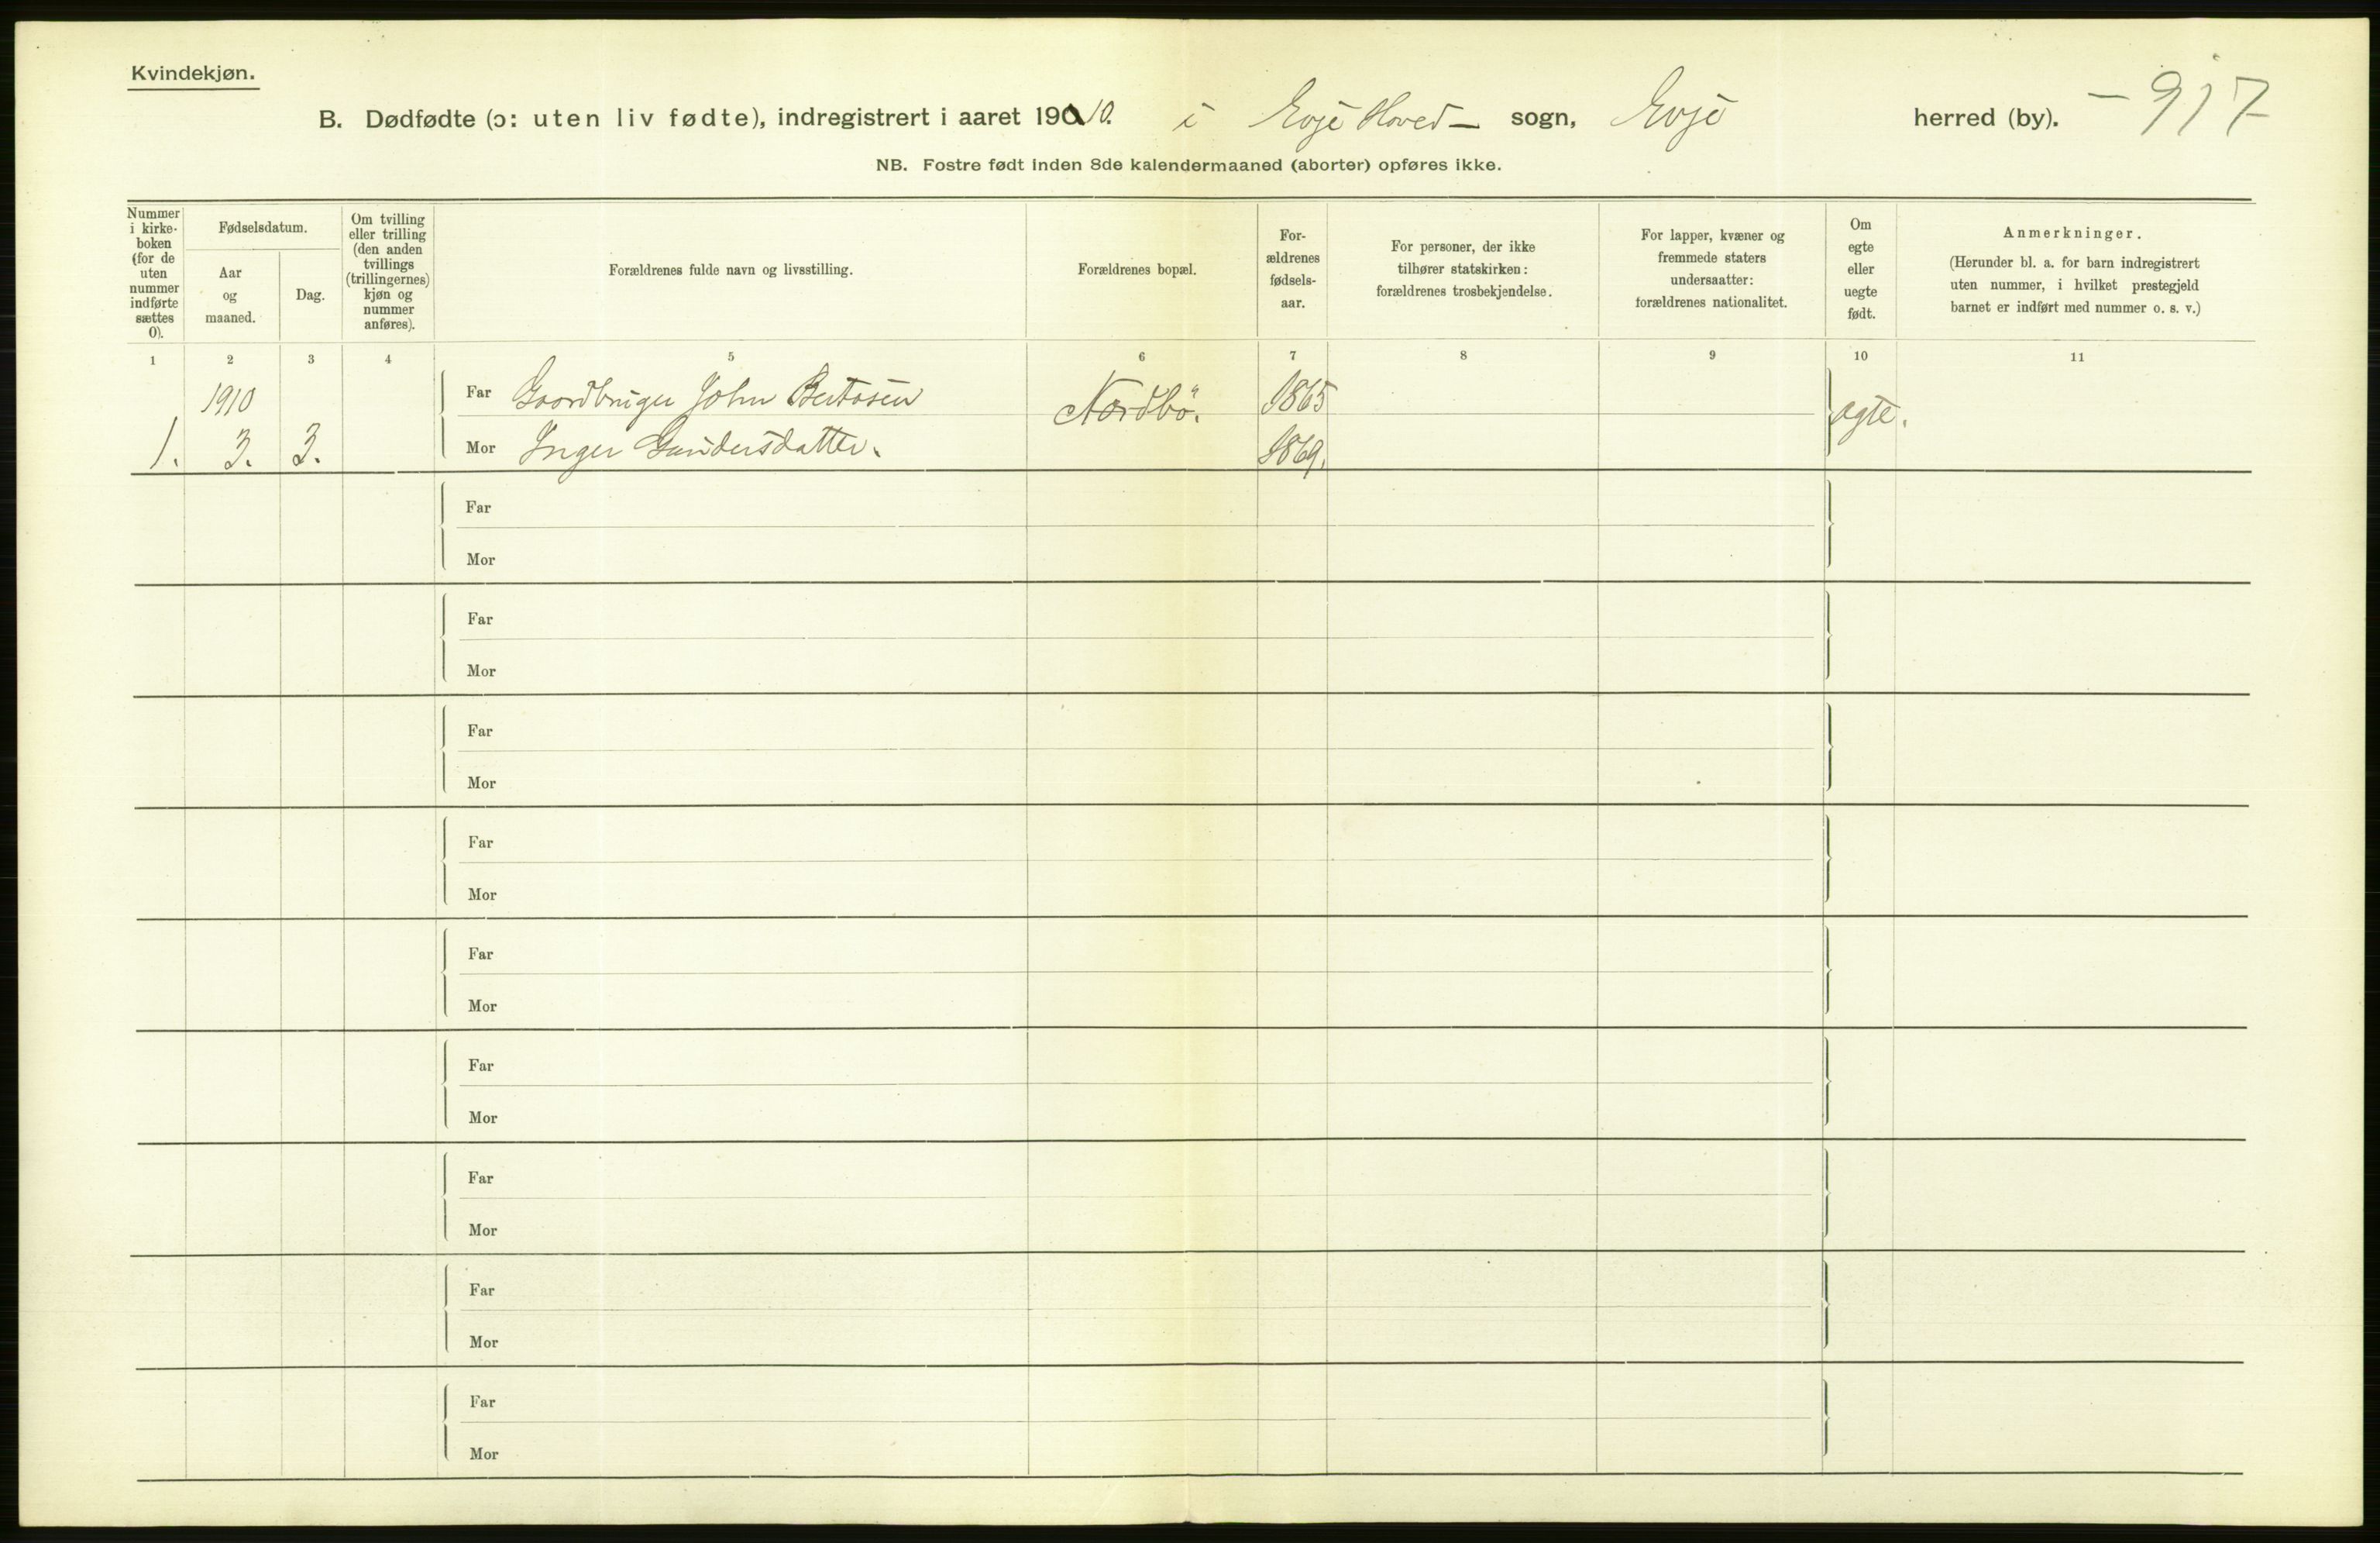 Kvindekjøn.
B. Dødfødte (ɔ: uten liv fødte), indregistrert i aaret 1910. i Evje Hoved- sogn, Evje herred (by). - 917
NB. Fostre født inden 8de kalendermaaned (aborter) opføres ikke.
Nummer i kirke-boken (for de uten nummer indførte sættes 0).
Fødselsdatum.
Aar og maaned.
Dag.
Om tvilling eller trilling (den anden tvillings (trillingernes) kjøn og nummer anføres).
Forældrenes fulde navn og livsstilling.
Forældrenes bopæl.
For-ældrenes fødsels-aar.
For personer, der ikke tilhører statskirken: forældrenes trosbekjendelse.
For lapper, kvæner og fremmede staters undersaatter: forældrenes nationalitet.
Om egte eller uegte født.
Anmerkninger.
(Herunder bl. a. for barn indregistrert uten nummer, i hvilket prestegjeld barnet er indført med nummer o. s. v.)
1 2 3 4 5 6 7 8 9 10 11
1910 Far Gaardbruger John Bentsen Nordbö. 1865 ægte.
1. 3. 3. Mor Inger Gundersdatter. 1869.
Far
Mor
Far
Mor
Far
Mor
Far
Mor
Far
Mor
Far
Mor
Far
Mor
Far
Mor
Far
Mor